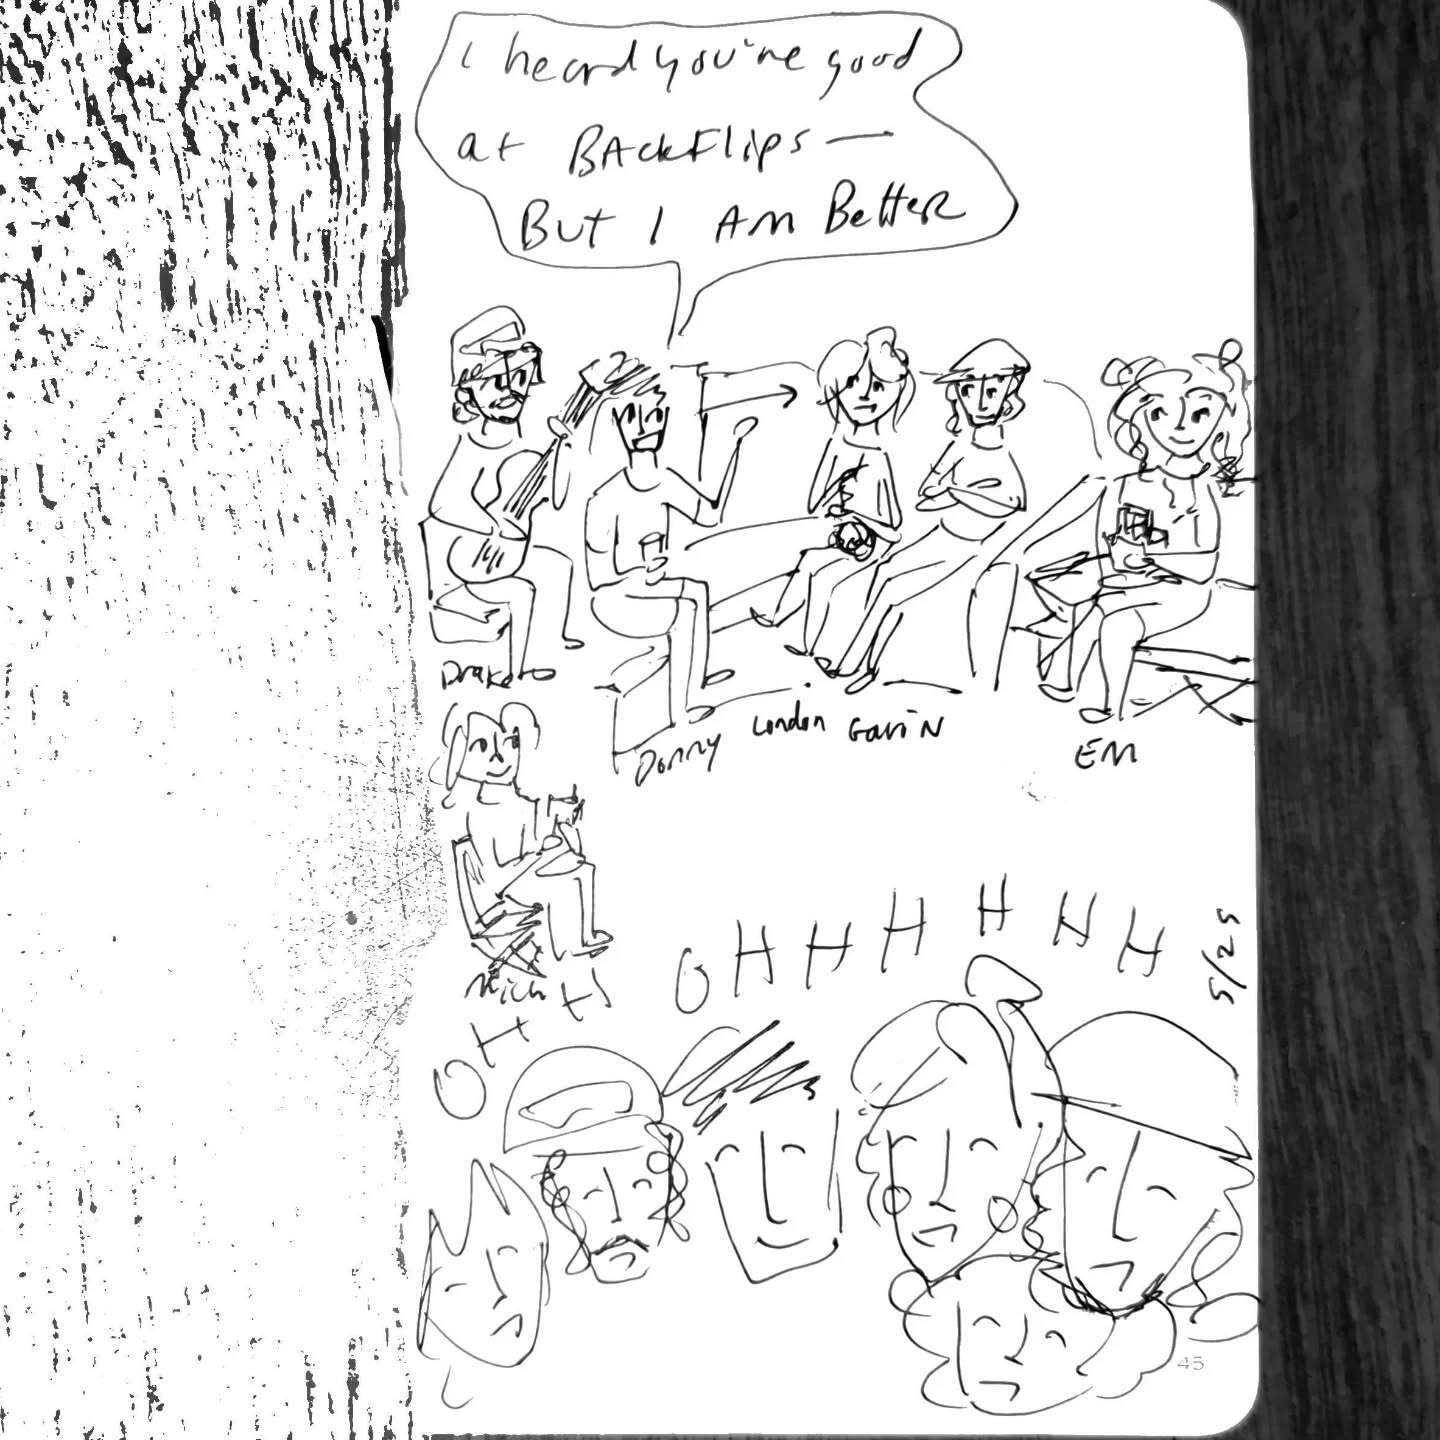 I heard you're good
at BACKFlips —
But I AM Better
Drake
Donny
London
GaviN
EM
Nick
OHH!
OHHHHHH
5/29
45